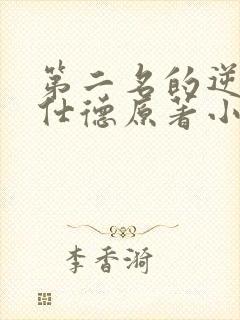 第二名的逆
仕德原著小
李香漪